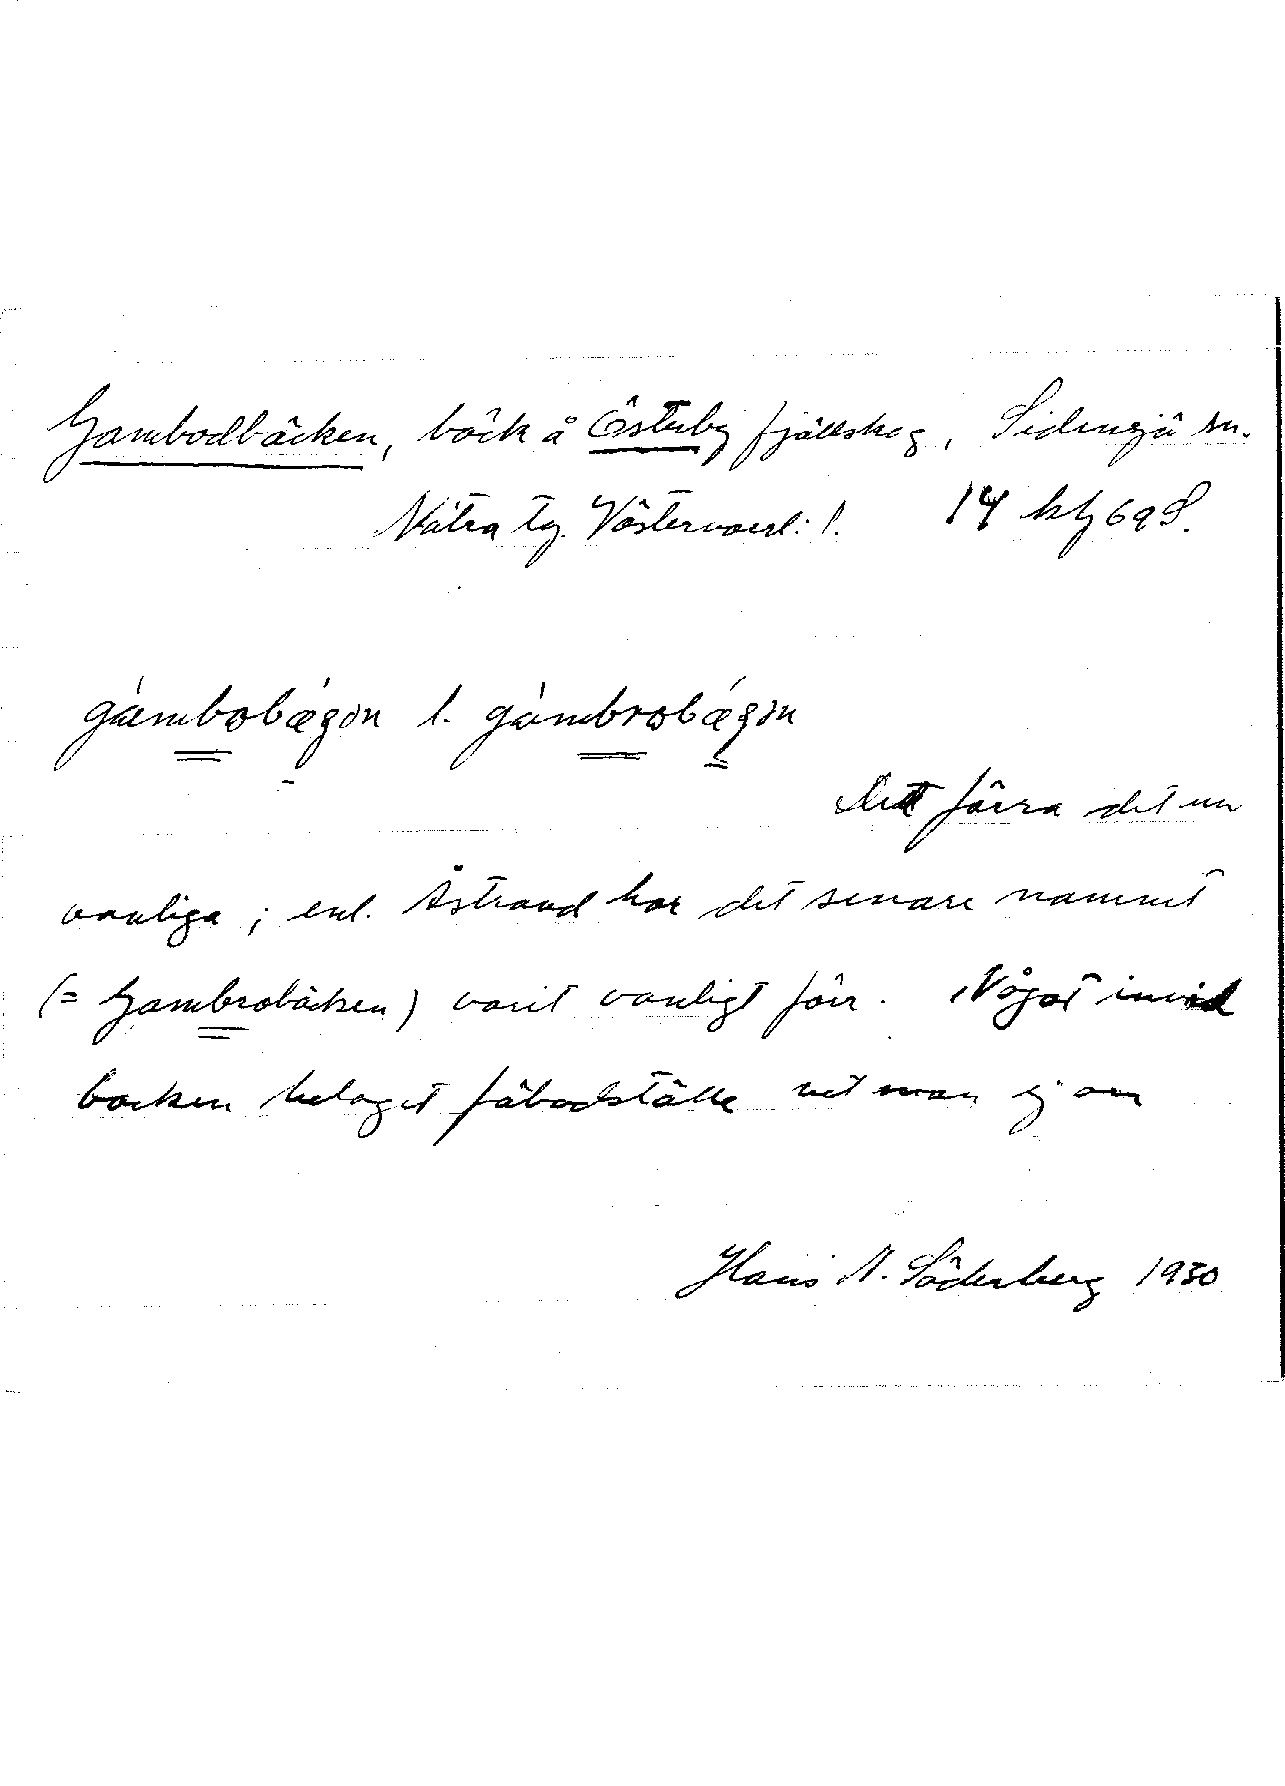 Gambodbäcken, bäck å Österby fjällskog, Sidensjö sn.
Nätra tg. Västernorrl: l. 14 bl g 69 S.
gàmbobǽgən l. gàmbrobǽgən
Det förra det nu
vanliga; enl. Åstrand har det senare namnet
(= Gambrobäcken) varit vanligt förr. Något invid
bäcken beläget fäbodställe vet man ej om
Hans A. Söderberg 1930